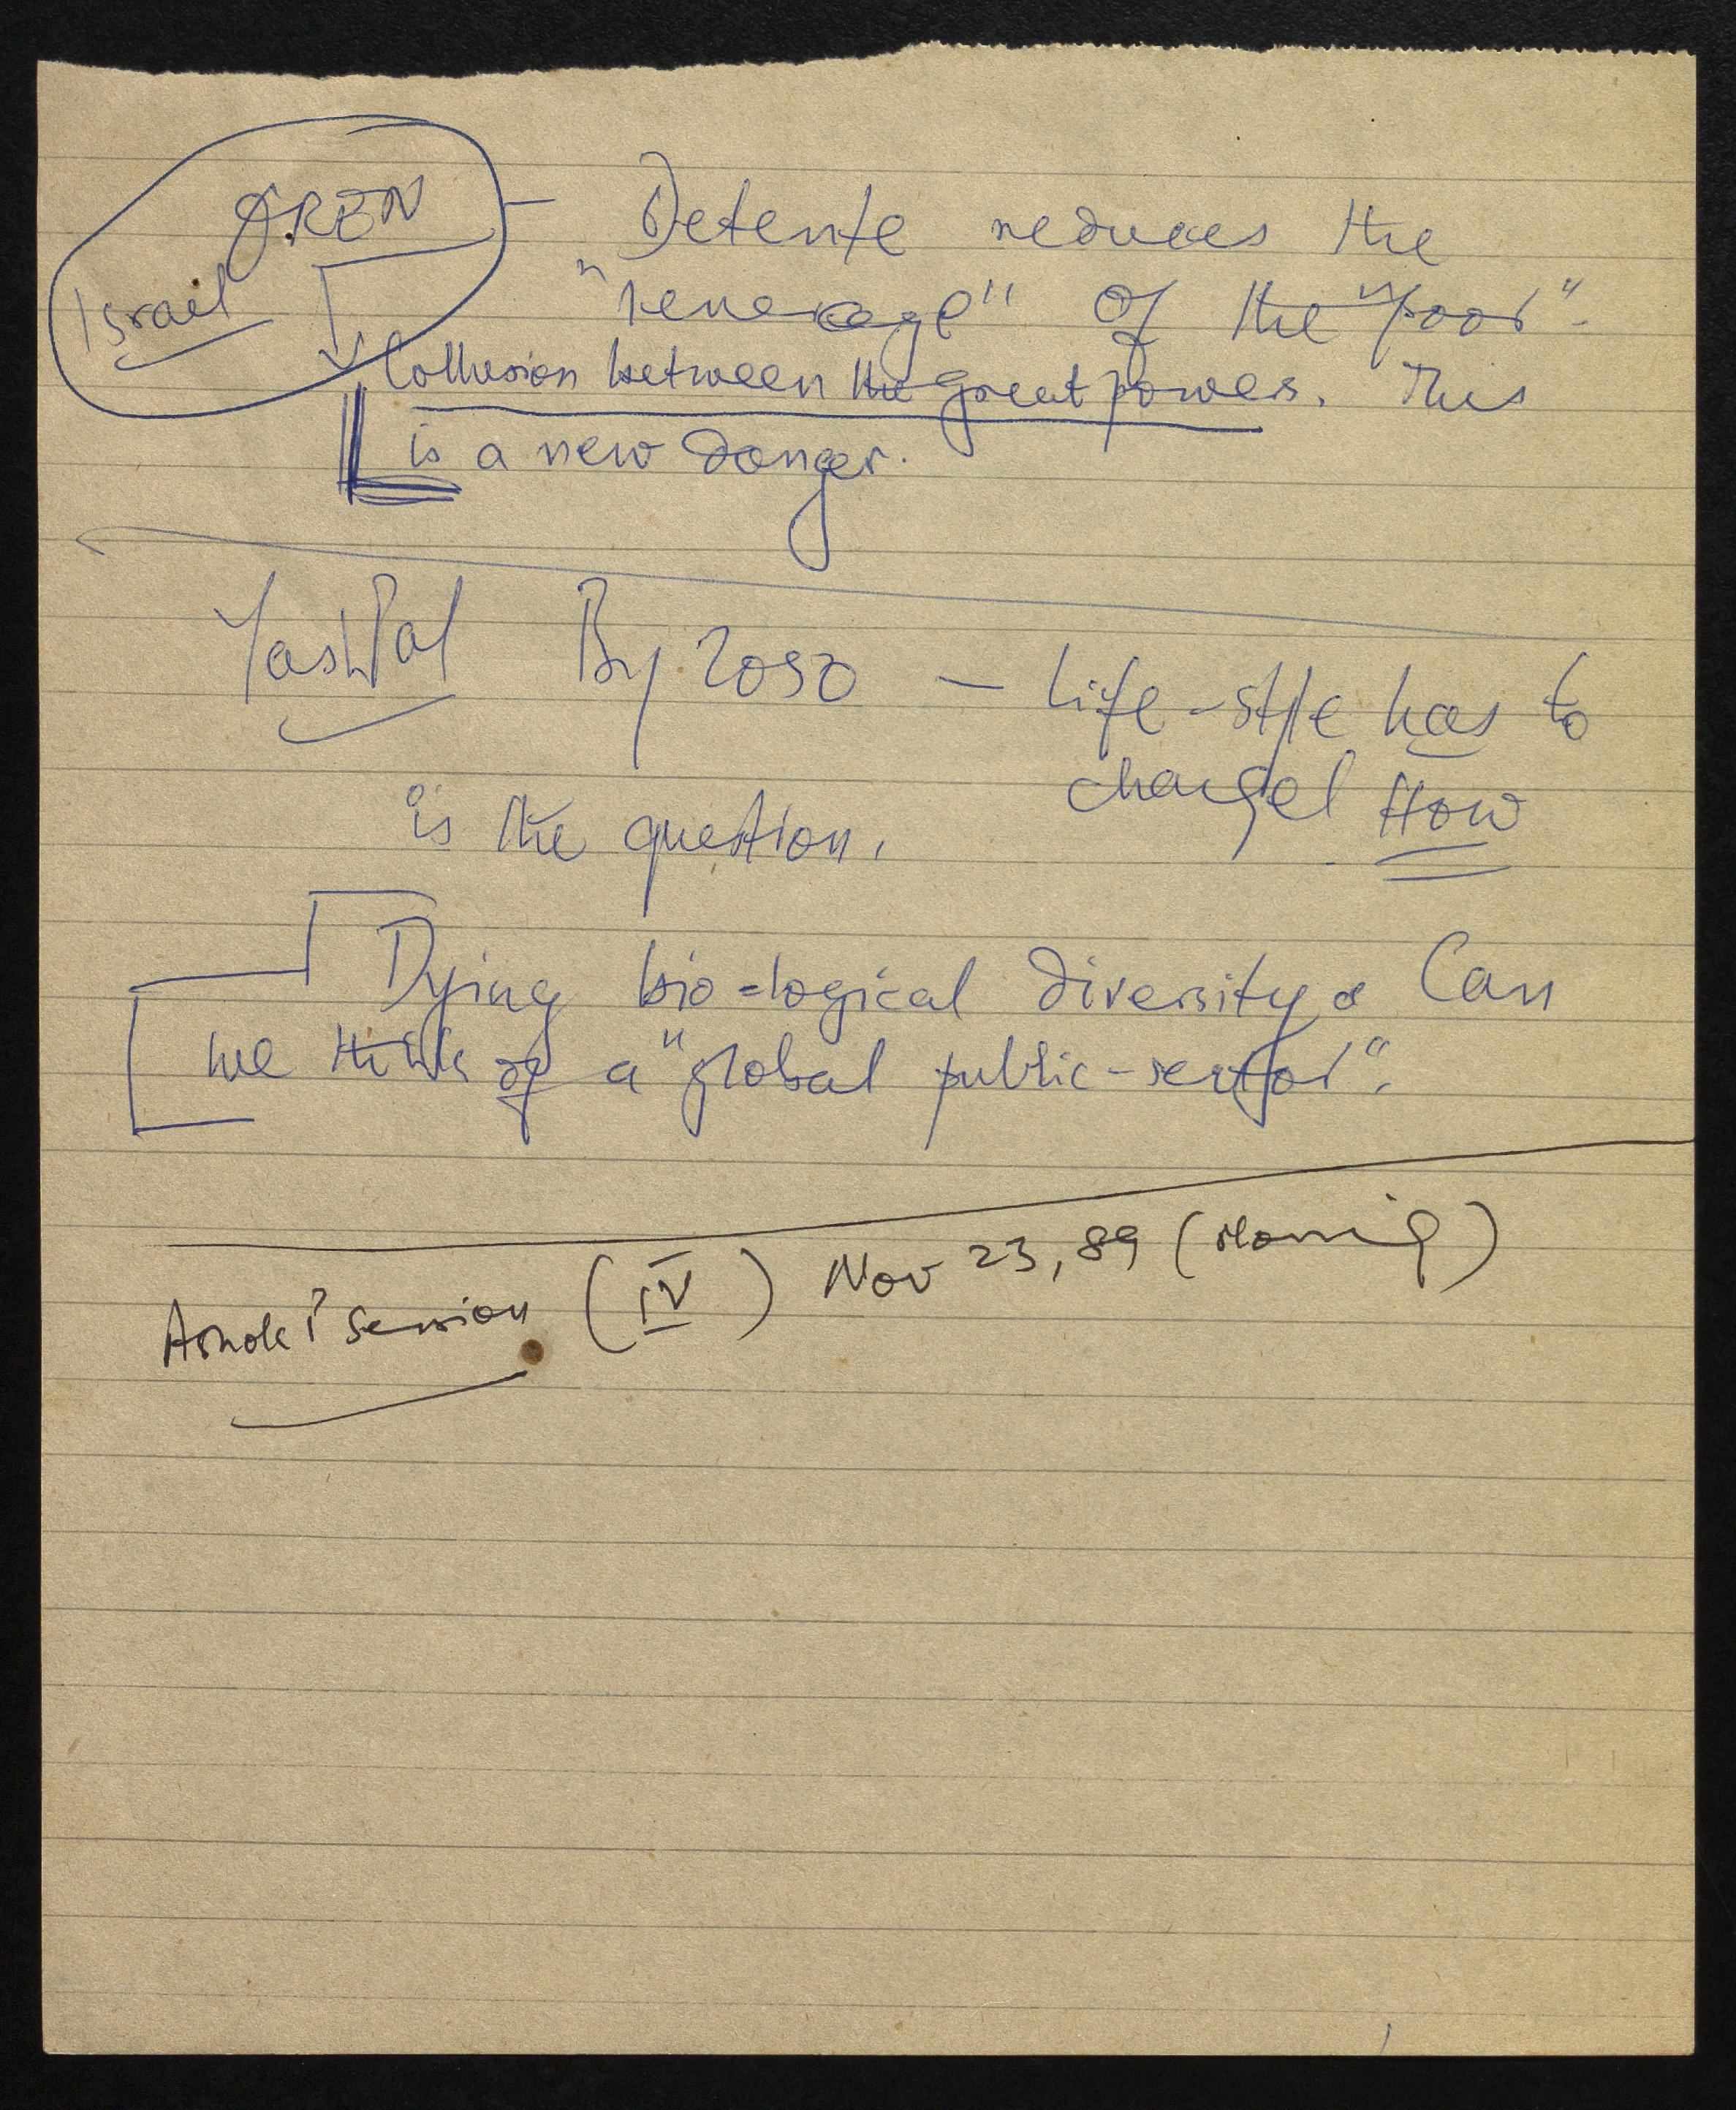 OREN — Detente reduces the
Israel "leverage" of the "poor".
Collusion between the great powers. This
is a new danger.
YashPal By 2050 — Life-style has to
change! How
is the question.
Dying bio-logical diversity & Can
we think of a "global public-sector".
Ashok's session (IV) Nov 23, 89 (Morning)